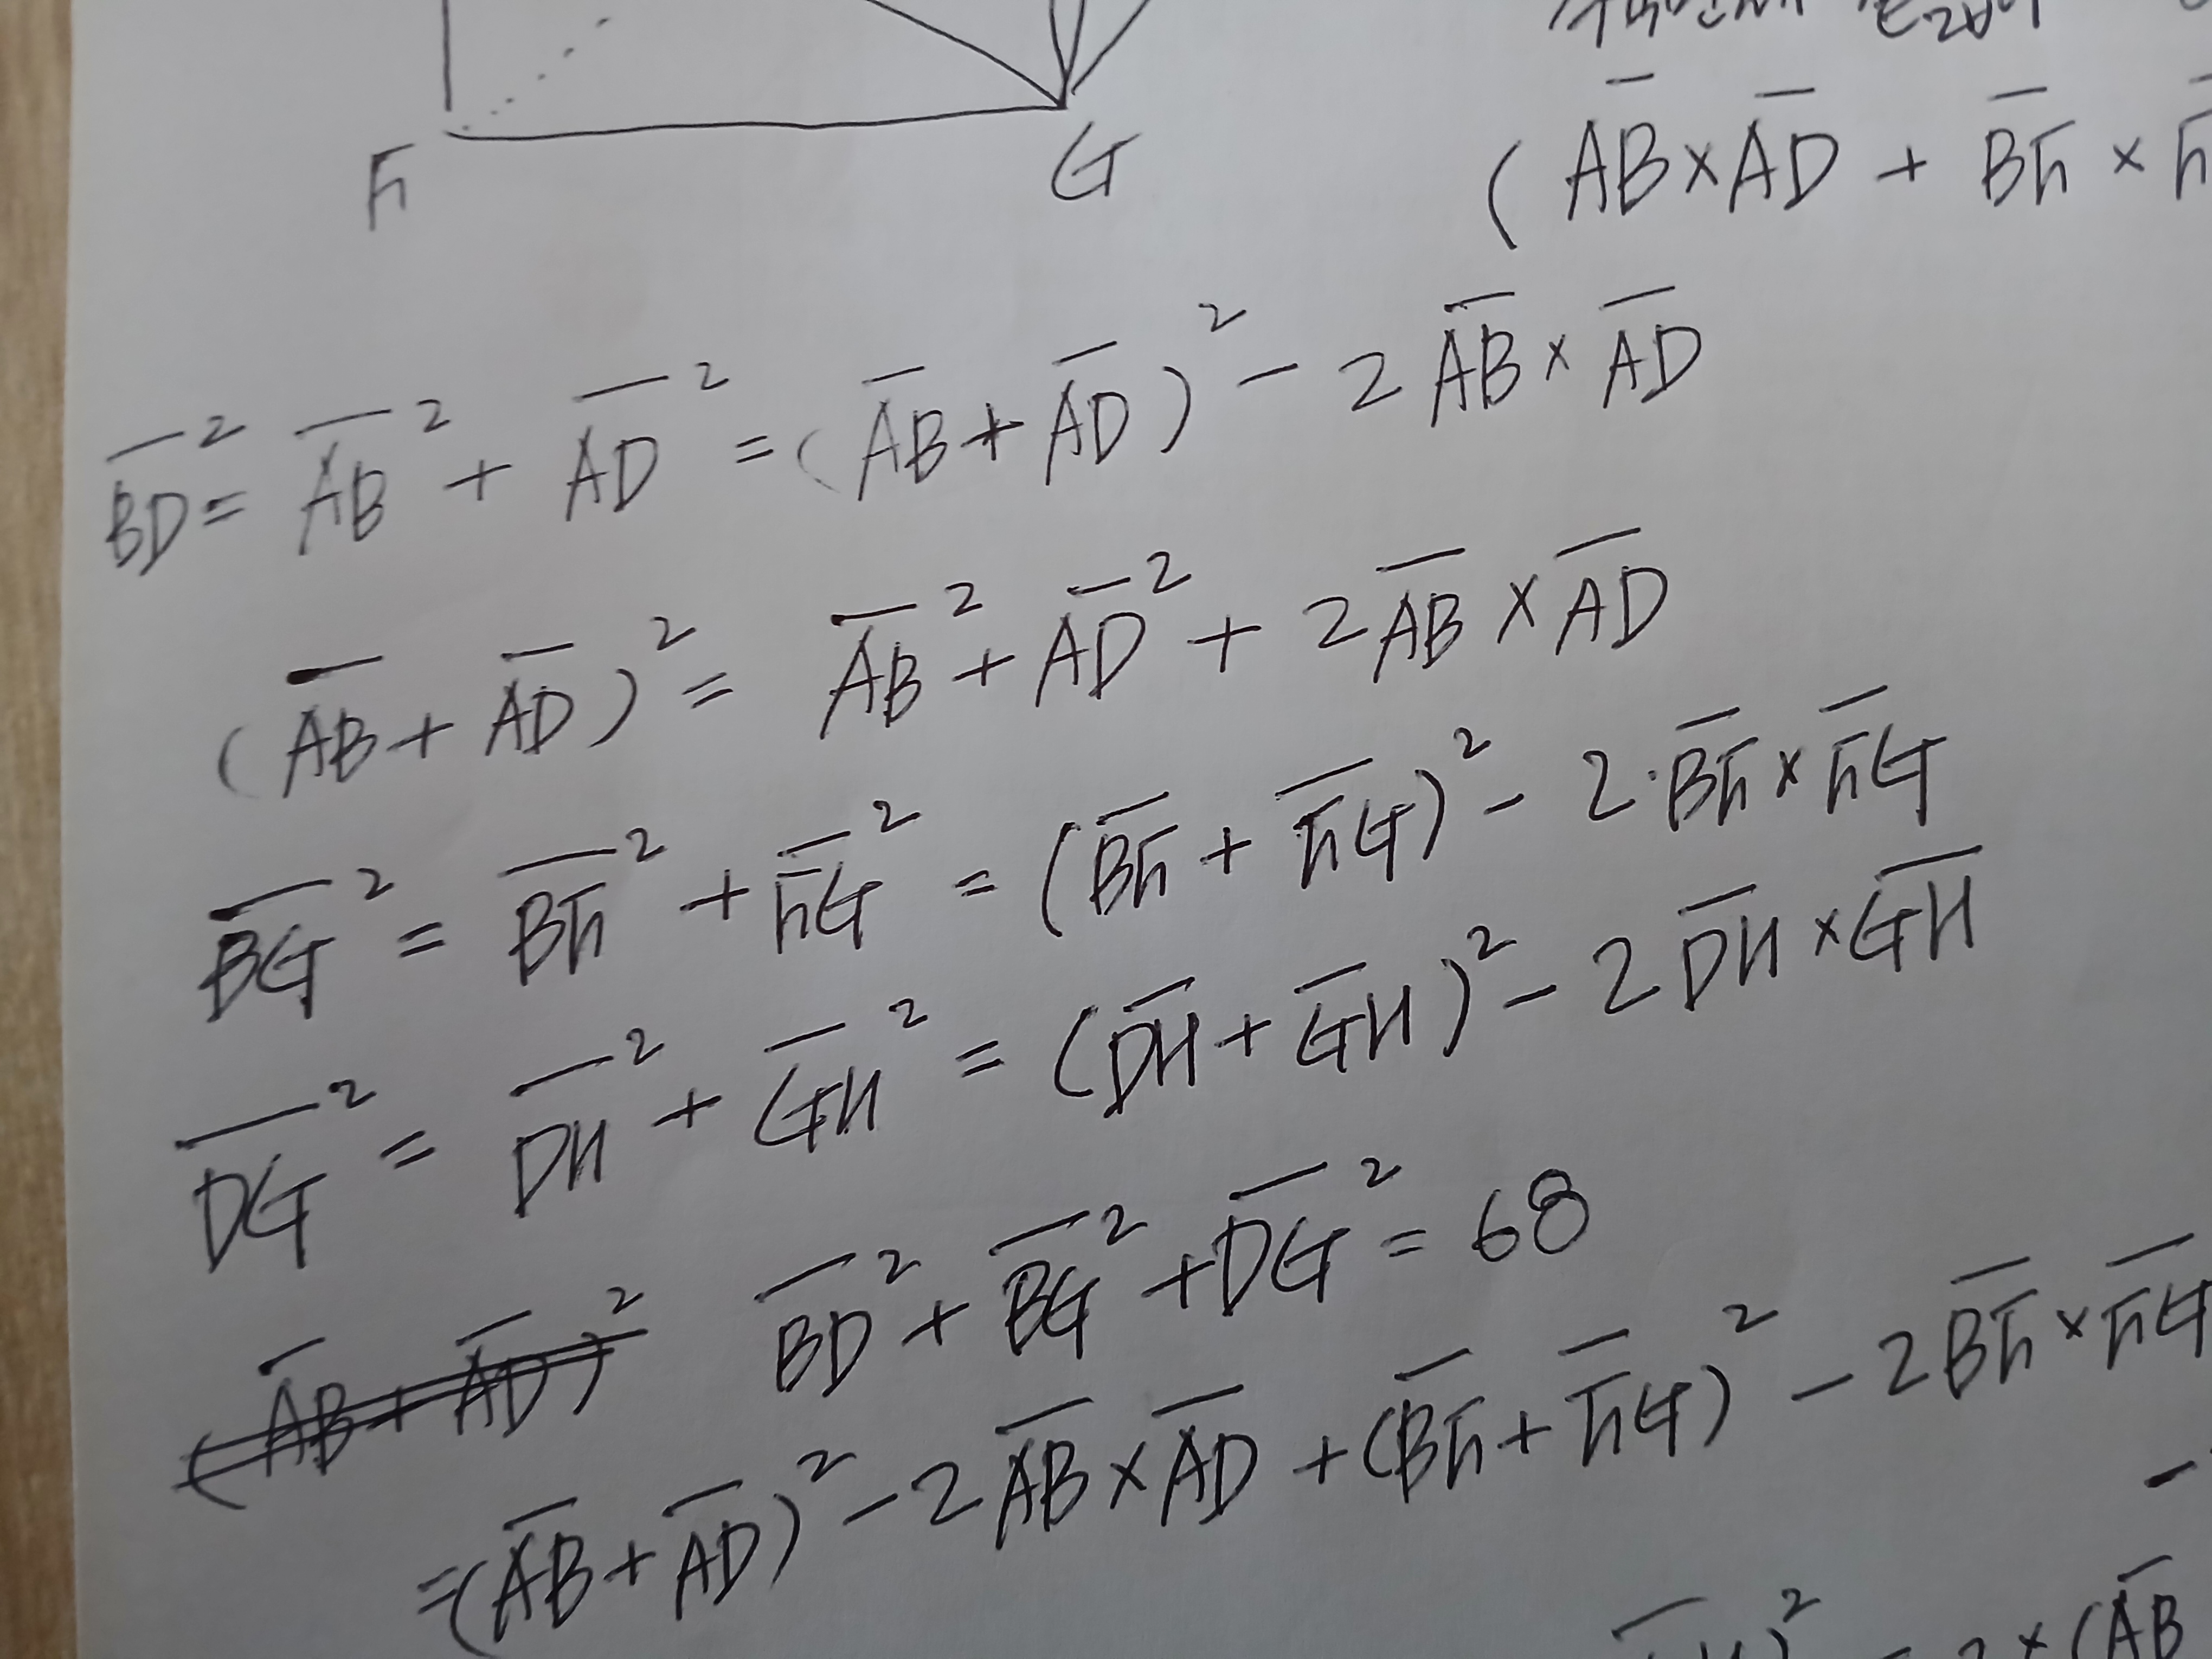 F G
(A̅B̅×A̅D̅ + B̅F̅ ×
B̅D̅² = A̅B̅² + A̅D̅² = (A̅B̅ + A̅D̅)² - 2A̅B̅ × A̅D̅
(A̅B̅ + A̅D̅)² = A̅B̅² + A̅D̅² + 2A̅B̅ × A̅D̅
B̅G̅² = B̅F̅² + F̅G̅² = (B̅F̅ + F̅G̅)² - 2·B̅F̅ × F̅G̅
D̅G̅² = D̅H̅² + G̅H̅² = (D̅H̅ + G̅H̅)² - 2D̅H̅ × G̅H̅
(A̅B̅ + A̅D̅)² B̅D̅² + B̅G̅² + D̅G̅² = 68
=(A̅B̅ + A̅D̅)² - 2A̅B̅ × A̅D̅ + (B̅F̅ + F̅G̅)² - 2B̅F̅ × F̅G̅
)² - 2×(A̅B̅